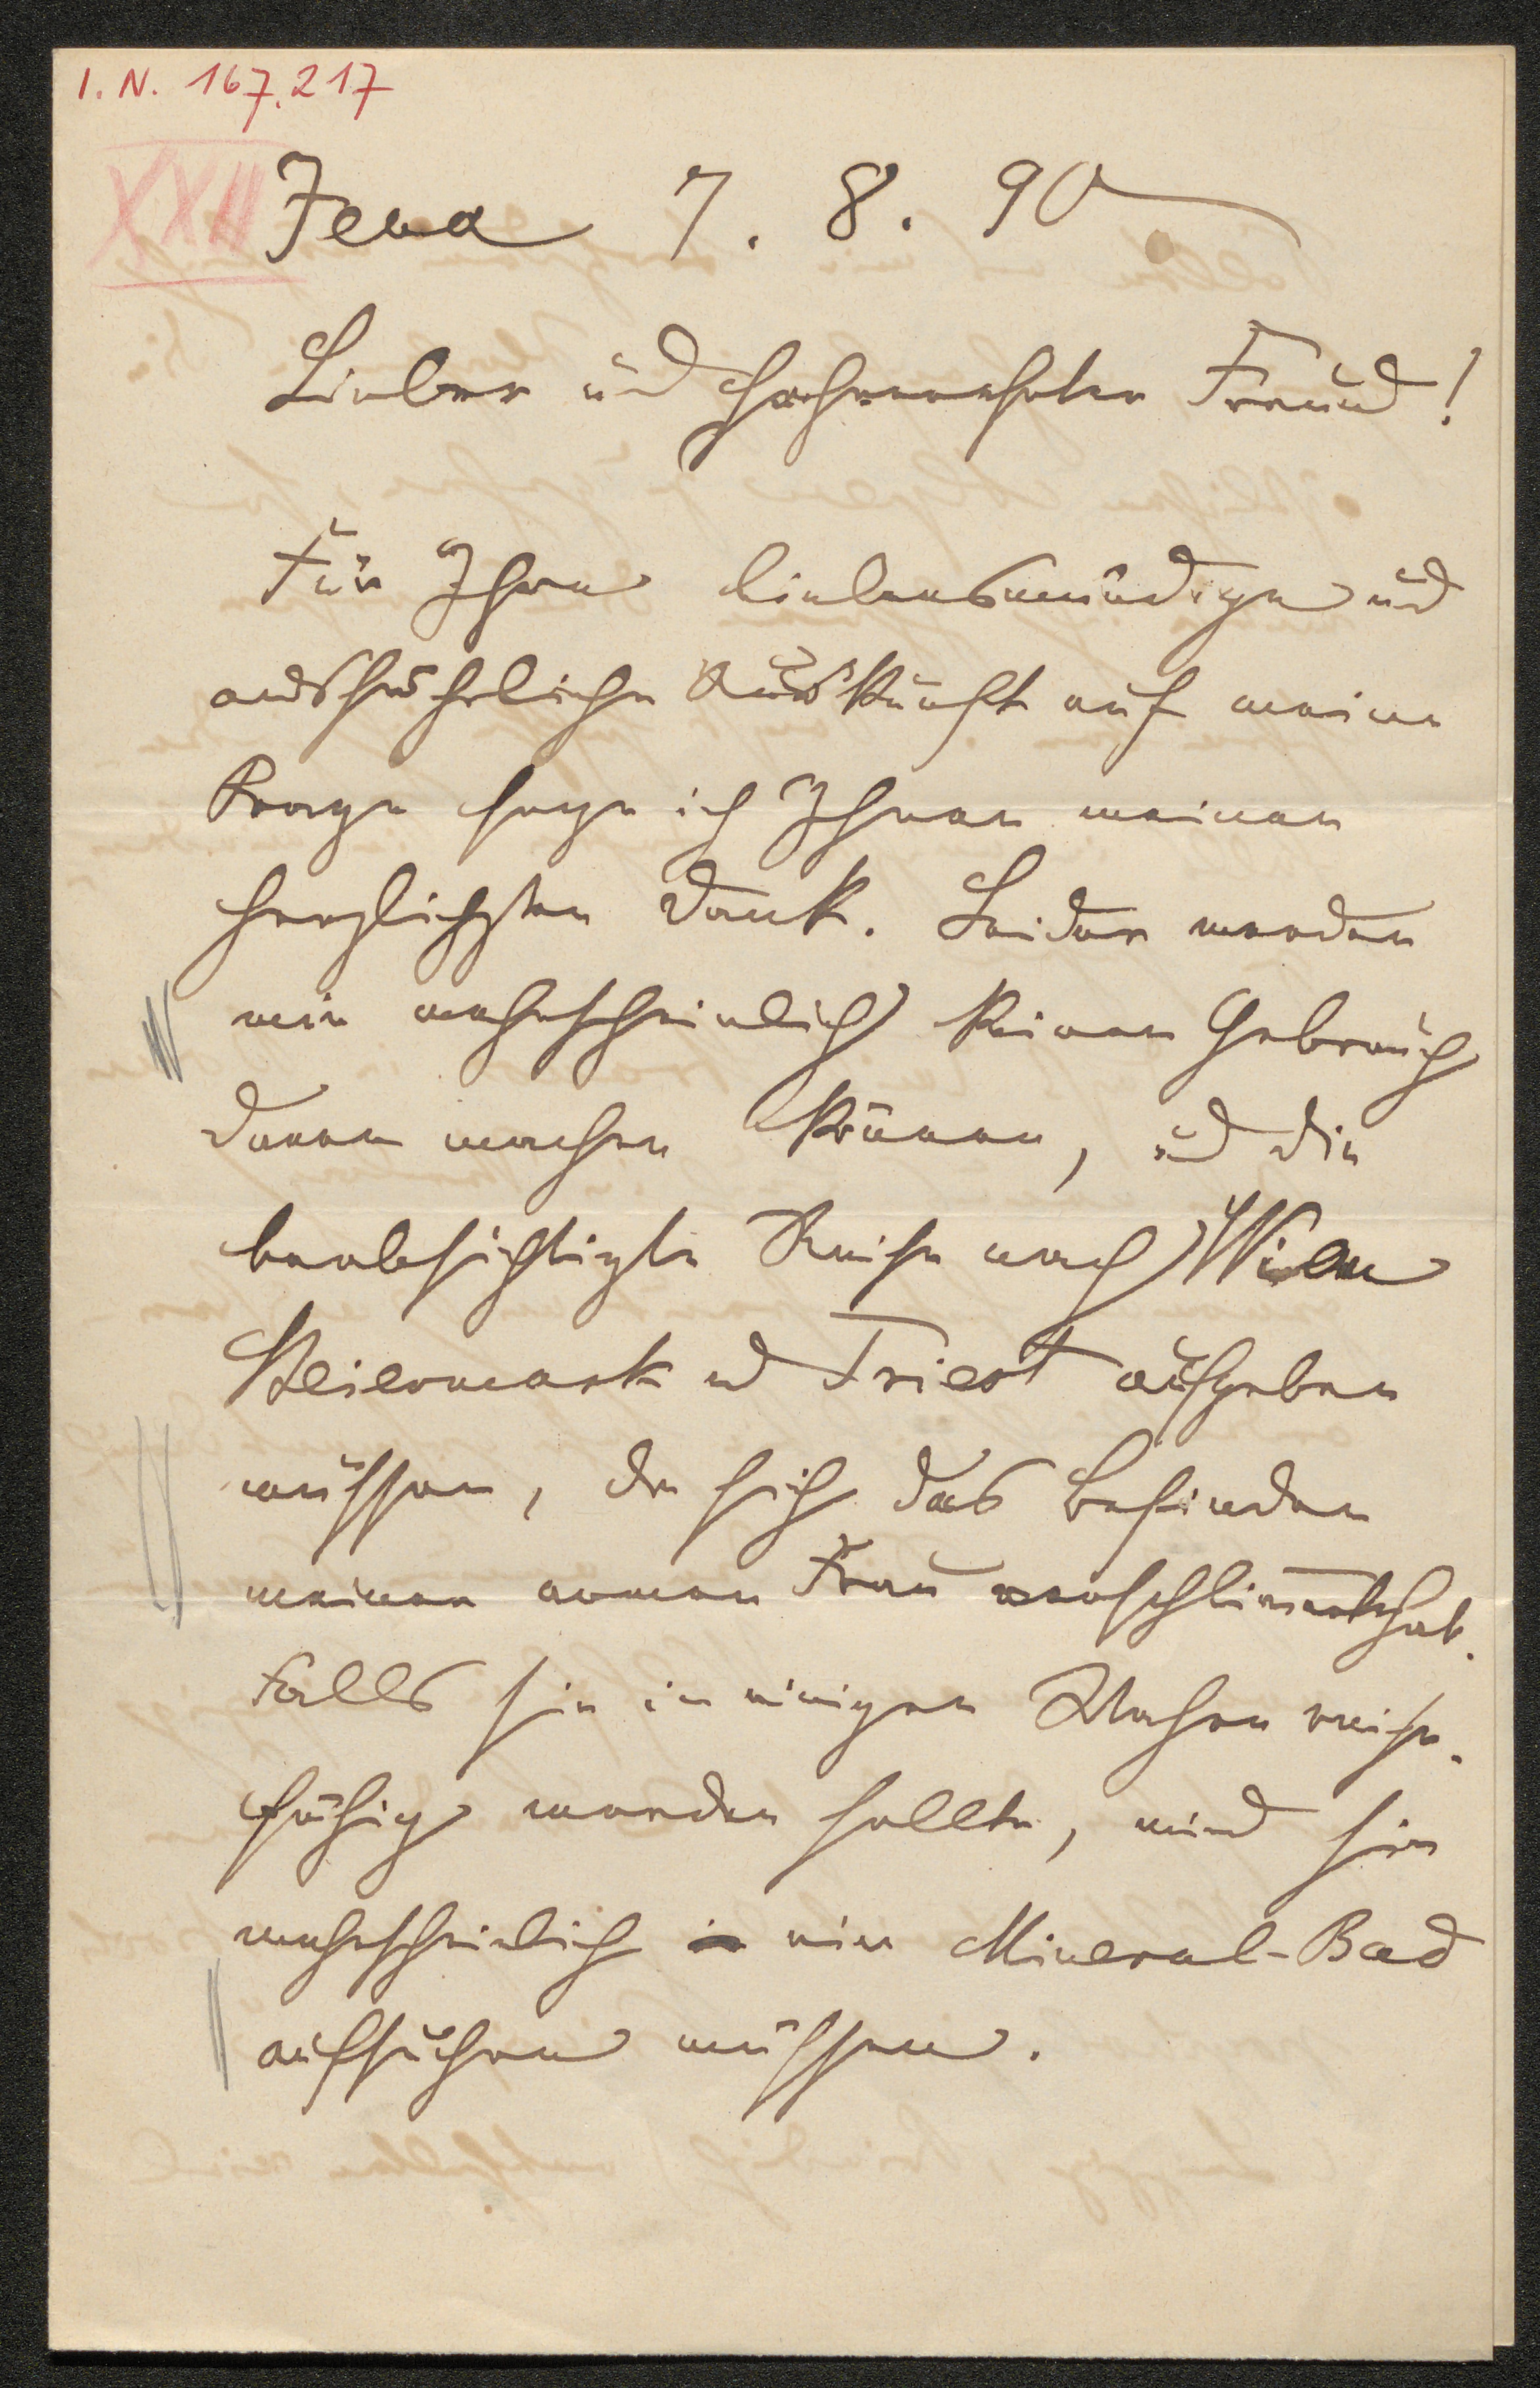 I. N. 167.217
XXII
Jena 7. 8. 90
Lieber und hochverehrter Freund!
Für Ihre liebenswürdige und
ausführliche Auskunft auf meine
Frage sage ich Ihnen meinen
herzlichsten Dank. Leider werden
wir wahrscheinlich keinen Gebrauch
davon machen können, und die
beabsichtigte Reise nach Wien
Steiermark und Triest aufgeben
müssen, da sich das Befinden
meiner armen Frau verschlimmert hat.
Falls sie in einigen Wochen reise-
fähig werden sollte, wird sie
wahrscheinlich ein Mineral-Bad
aufsuchen müssen.